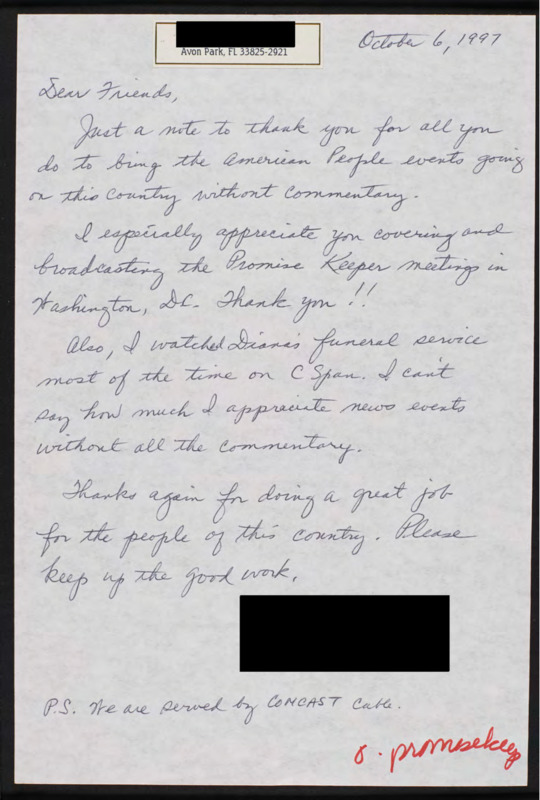 Avon Park, FL 33825-2921
October 6, 1997
Dear Friends,
Just a note to thank you for all you
do to bring the American People events going
on this country without commentary.
I especially appreciate you covering and
broadcasting the Promise Keeper meetings in
Washington, DC. Thank you!!
Also, I watched Diana's funeral service
most of the time on C Span. I can't
say how much I appreciate news events
without all the commentary.
Thanks again for doing a great job
for the people of this country. Please
keep up the good work.
P.S. We are served by COMCAST Cable.
promisekeep